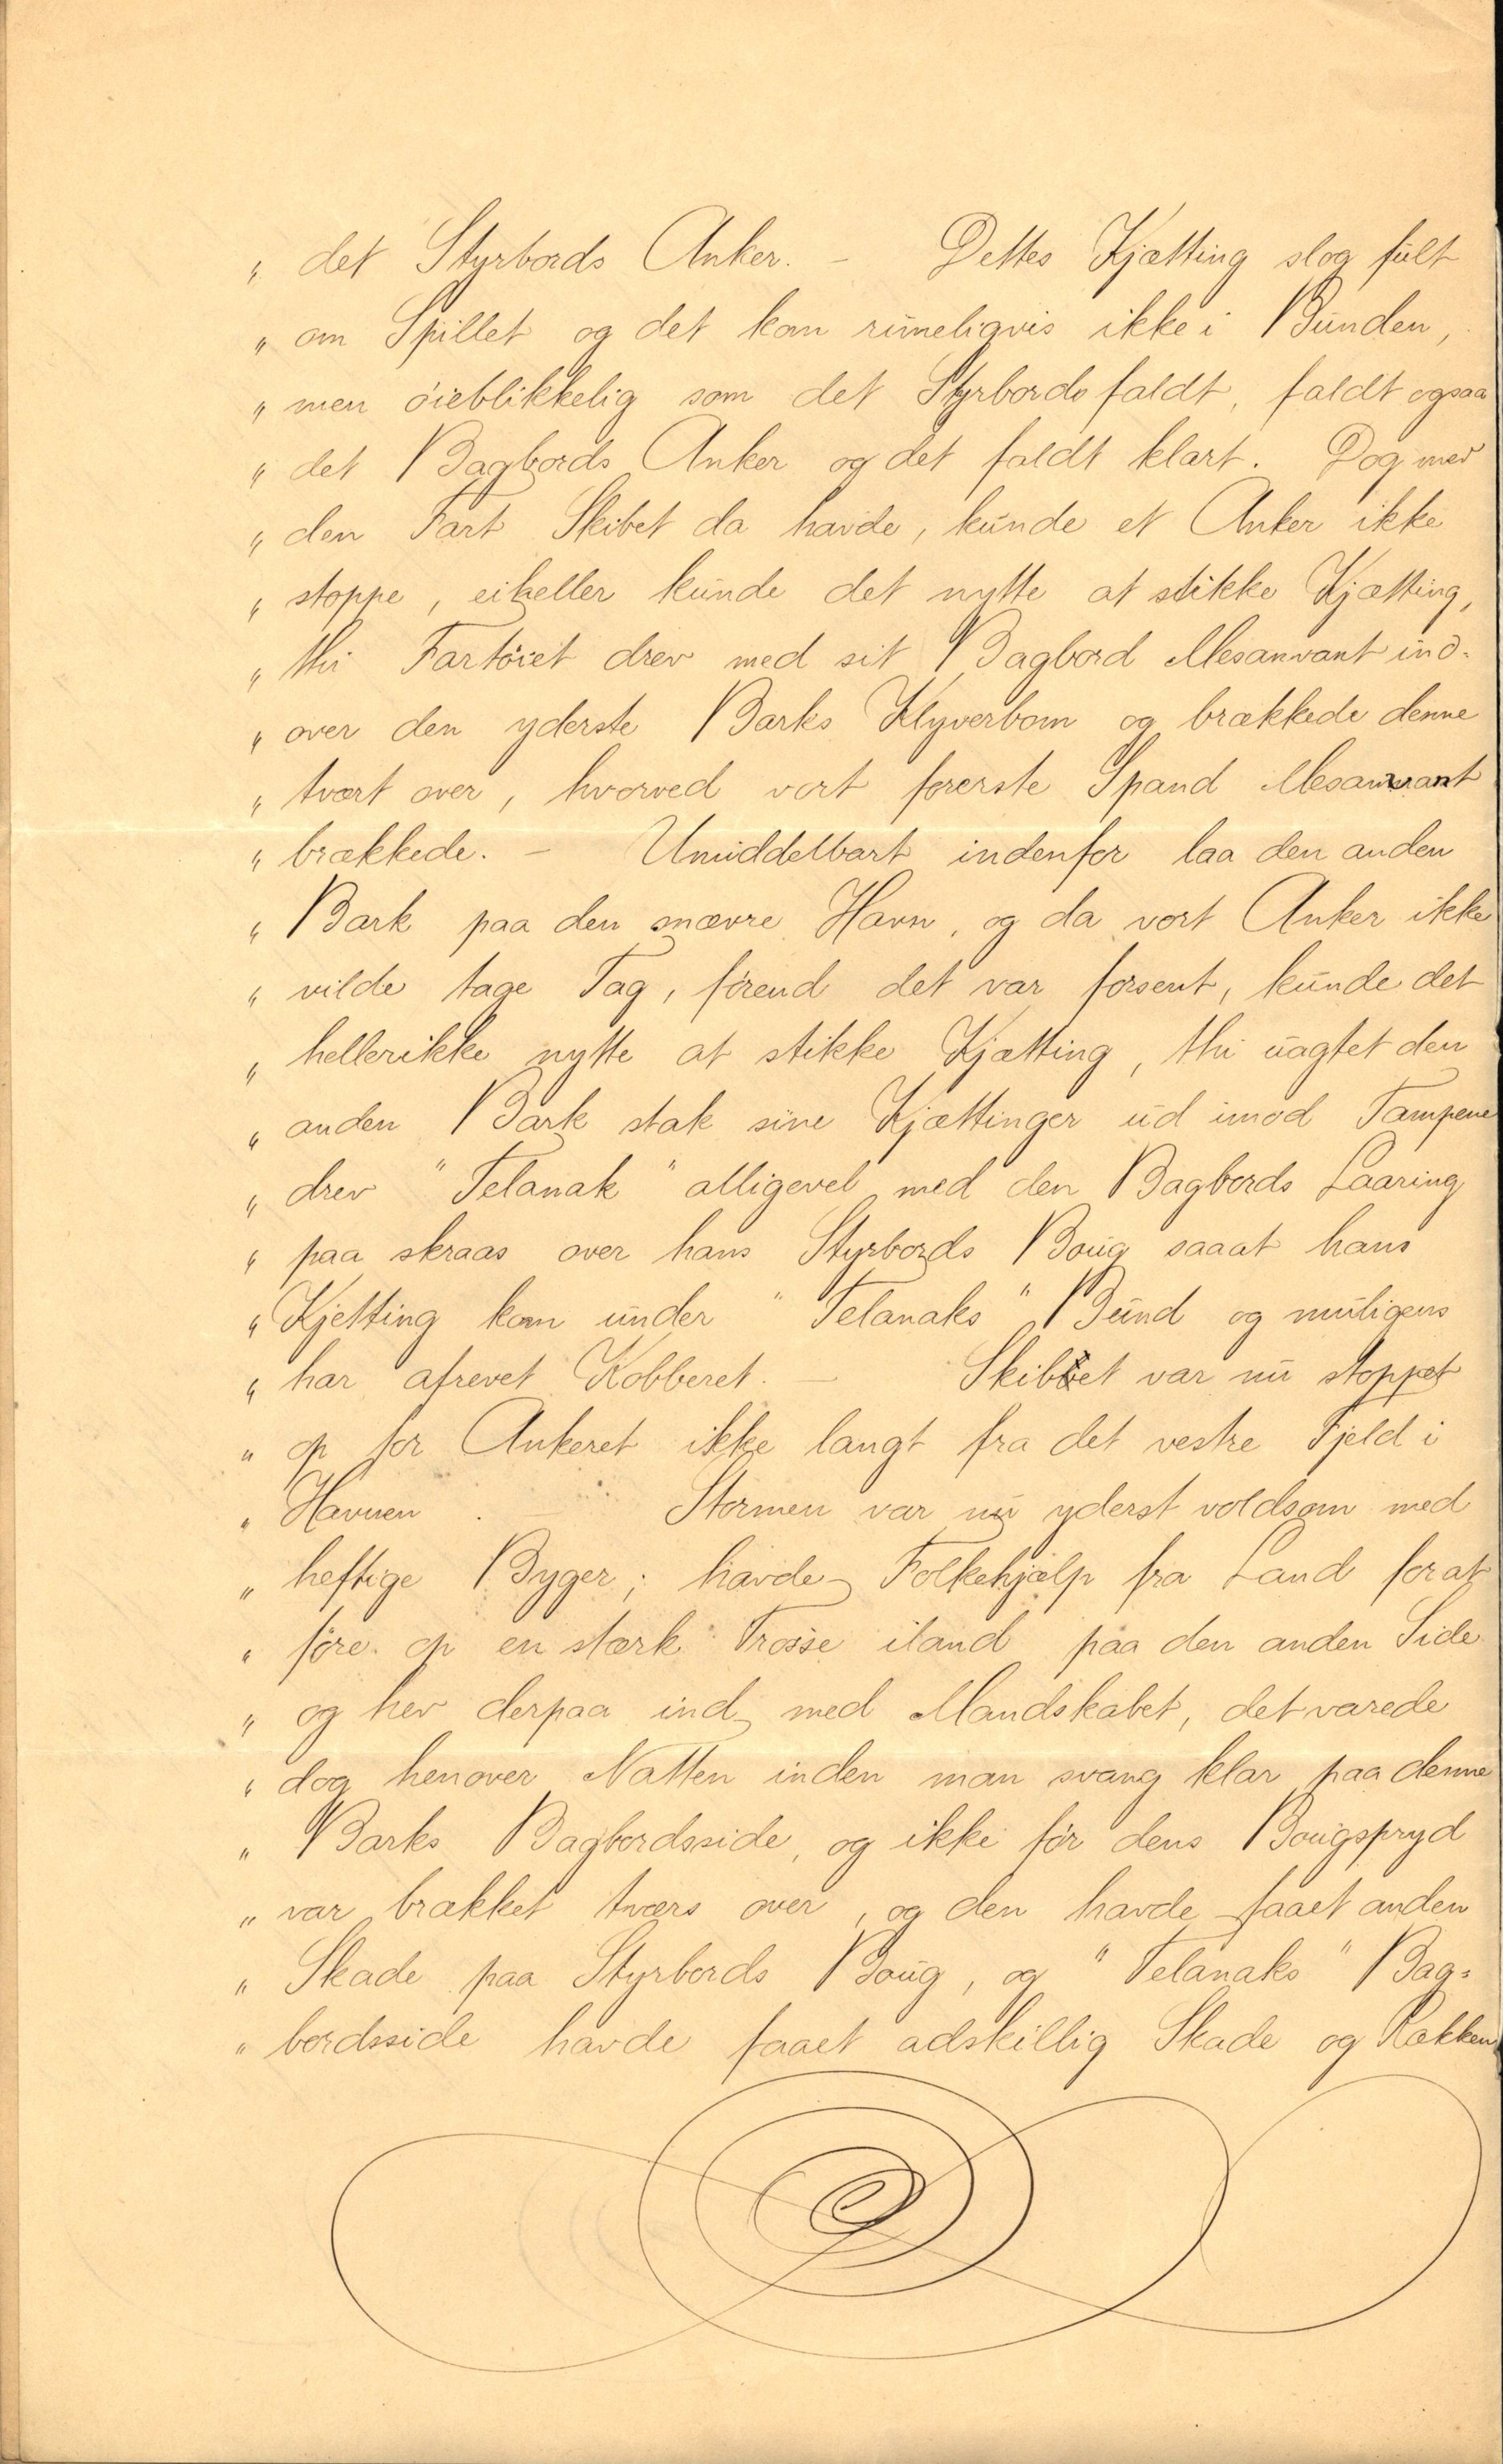 „ det Styrbords Anker. – Dettes Kjætting slog fült
„ om Spillet og det kom rimeligvis ikke i Bünden,
„ men öieblikkelig som det Styrbords faldt, faldt ogsaa
„ det Bagbords Anker og det faldt klart. Dog med
„ den Fart Skibet da havde, künde et Anker ikke
„ stoppe, eiheller künde det nytte at stikke Kjætting,
„ thi Fartöiet drev med sit Bagbord Mesanvant ind-
„ over den yderste Barks Klyverbom og brækkede denne
„ tvært over, hvorved vort forerste Spand Mesanvant
„ brækkede. – Umiddelbart indenfor laa den anden
„ Bark paa den snævre Havn, og da vort Anker ikke
„ vilde tage Tag, förend det var forsent, künde det
„ hellerikke nytte at stikke Kjætting, thi üagtet den
„ anden Bark stak sine Kjættinger üd imod Tampene
„ drev "Telanak" alligevel med den Bagbords Laaring
„ paa skraas over hans Styrbords Boüg saaat hans
„ Kjetting kom ünder "Telanaks" Bünd og müligens
„ har afrevet Kobberet. – Skibet var nü stoppet
„ op for Ankeret ikke langt fra det vestre Fjeld i
„ Havnen. – Stormen var nü yderst voldsom med
„ heftige Byger; havde Folkehjælp fra Land forat
„ före op en stærk Trosse iland paa den anden Side
„ og hev derpaa ind med Mandskabet, det varede
„ dog henover Natten inden man svang klar paa denne
„ Barks Bagbordsside, og ikke för dens Bougspryd
„ var brækket tværs over, og den havde faaet anden
„ Skade paa Styrbords Boüg, og "Telanaks" Bag=
„ bordsside havde faaet adskillig Skade og Rækken